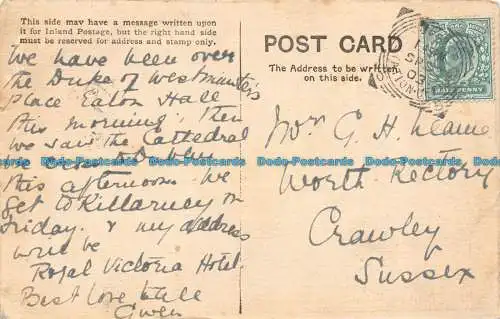 This side may have a message written upon
it for Inland Postage, but the right hand side
must be reserved for address and stamp only.
We have been over
the Duke of Westminster's
place Eaton Hall
this morning. Then
we saw the Cathedral
this afternoon. We
get to Killarney on
Friday. & my address
will be
Royal Victoria Hotel.
Best love to all
Gwen
POST CARD
The Address to be written
on this side.
HALF PENNY
Mrs G. H.
Worth Rectory
Crawley
Sussex
Dodo-Postcards Dodo-Postcards Dodo-Postcards Dodo-Postcards